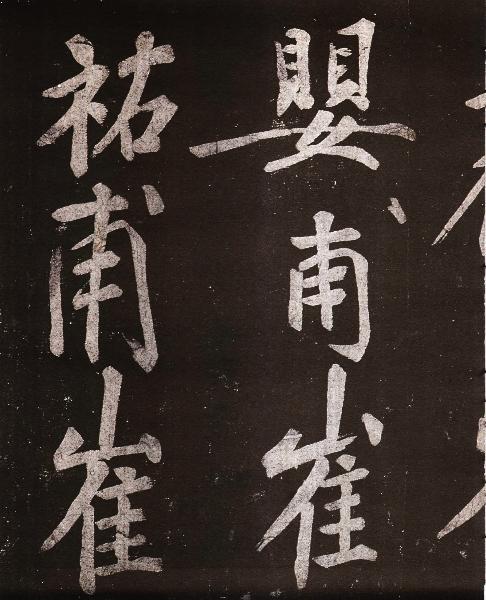 嬰甫崔
祐甫崔